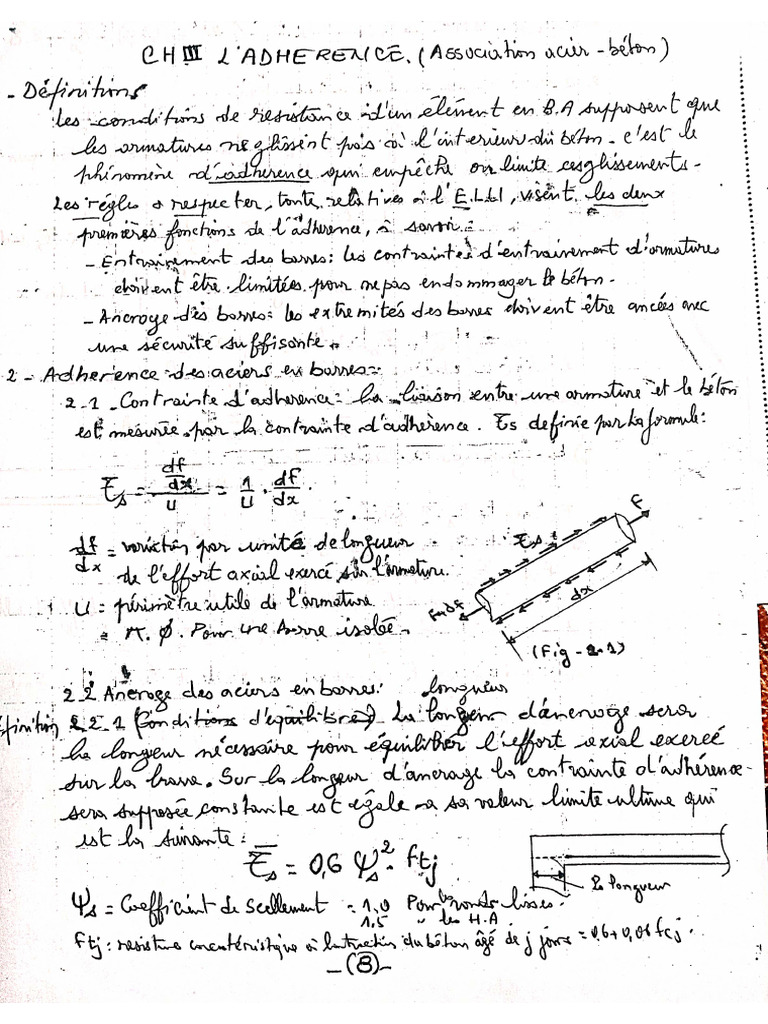 CH III L'ADHERENCE. (Association acier-béton)
- Définitions
Les conditions de résistance d'un élément en B.A supposent que
les armatures ne glissent pas à l'interieur du béton - c'est le
phénomène d'adherence qui empêche ou limite ces glissements -
Les régles à respecter, toute relatives à l'E.L.U, visent les deux
premières fonctions de l'adhérence, à savoir =
- Entrainement des barres : les contraintes d'entrainement d'armature
doivent être limitées pour ne pas endommager le béton -
- Ancroge des barres = les extremités des barres doivent être ancées avec
une sécurité suffisante .
2 - Adherence des aciers en barres =
2-1 - Contrainte d'adherence = La liaison entre une armature et le béton
est mesurée par la contrainte d'adhérence . τs definie par la formule :
τs = (df/dx)/U = 1/U . df/dx .
df/dx = variation par unité de longueur
de l'effort axial exercé sur l'armature.
U = périmètre utile de l'armature
= π. Ø. Pour une barre isolée -
F
τs
dx
F+dF
(Fig - 2.1)
2.2 Ancroge des aciers en barres : longueur
Définition 2.2-1 (Conditions d'équilibre) La longueur d'ancroge sera
la longueur nécessaire pour équilibrer l'effort axial exercé
sur la barre. Sur la longeur d'ancrage la contrainte d'adhérence
sera supposée constante est égale à sa valeur limite ultime qui
est la suivante :
τ̄s = 0,6 Ψs² . ftj
la longueur
Ψs = Coefficient de scellement = 1,0 Pour les ronds lisses .
1,5 " les H.A
ftj : resistance caractéristique à la traction du béton âgé de j jours = 0,6 + 0,06 fcj .
- (8) -